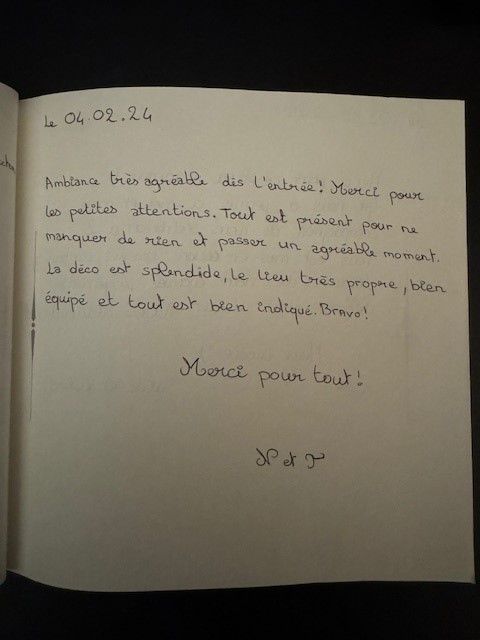 Le 04.02.24
Ambiance très agréable dès l'entrée! Merci pour
les petites attentions. Tout est présent pour ne
manquer de rien et passer un agréable moment.
La déco est splendide, le lieu très propre, bien
équipé et tout est bien indiqué. Bravo!
Merci pour tout!
N et J